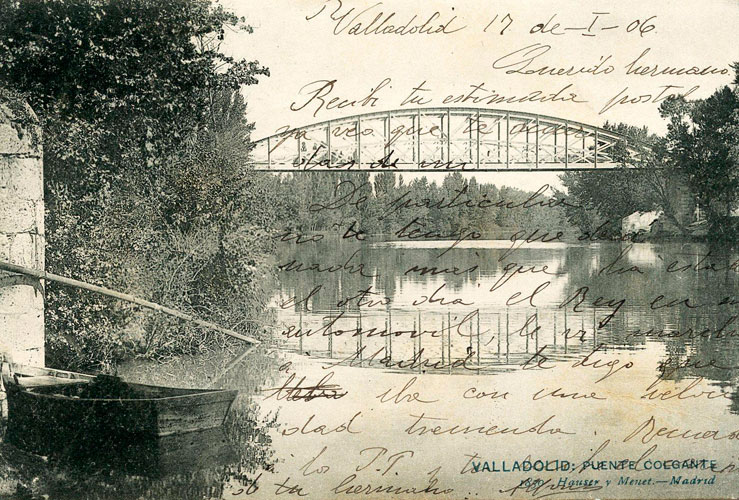 Valladolid 17 de-I-06
Querido hermano
Recibi tu estimada postal
ya veo que te
de mi
De particular
no te tengo que
nada mas que ha esta
el otro dia el Rey en
automovil, le vi march
a Madrid te digo que
iba con una veloci
dad tremenda.
a los P.P y tu
de tu hermano
VALLADOLID: PUENTE COLGANTE
Hauser y Menet.—Madrid